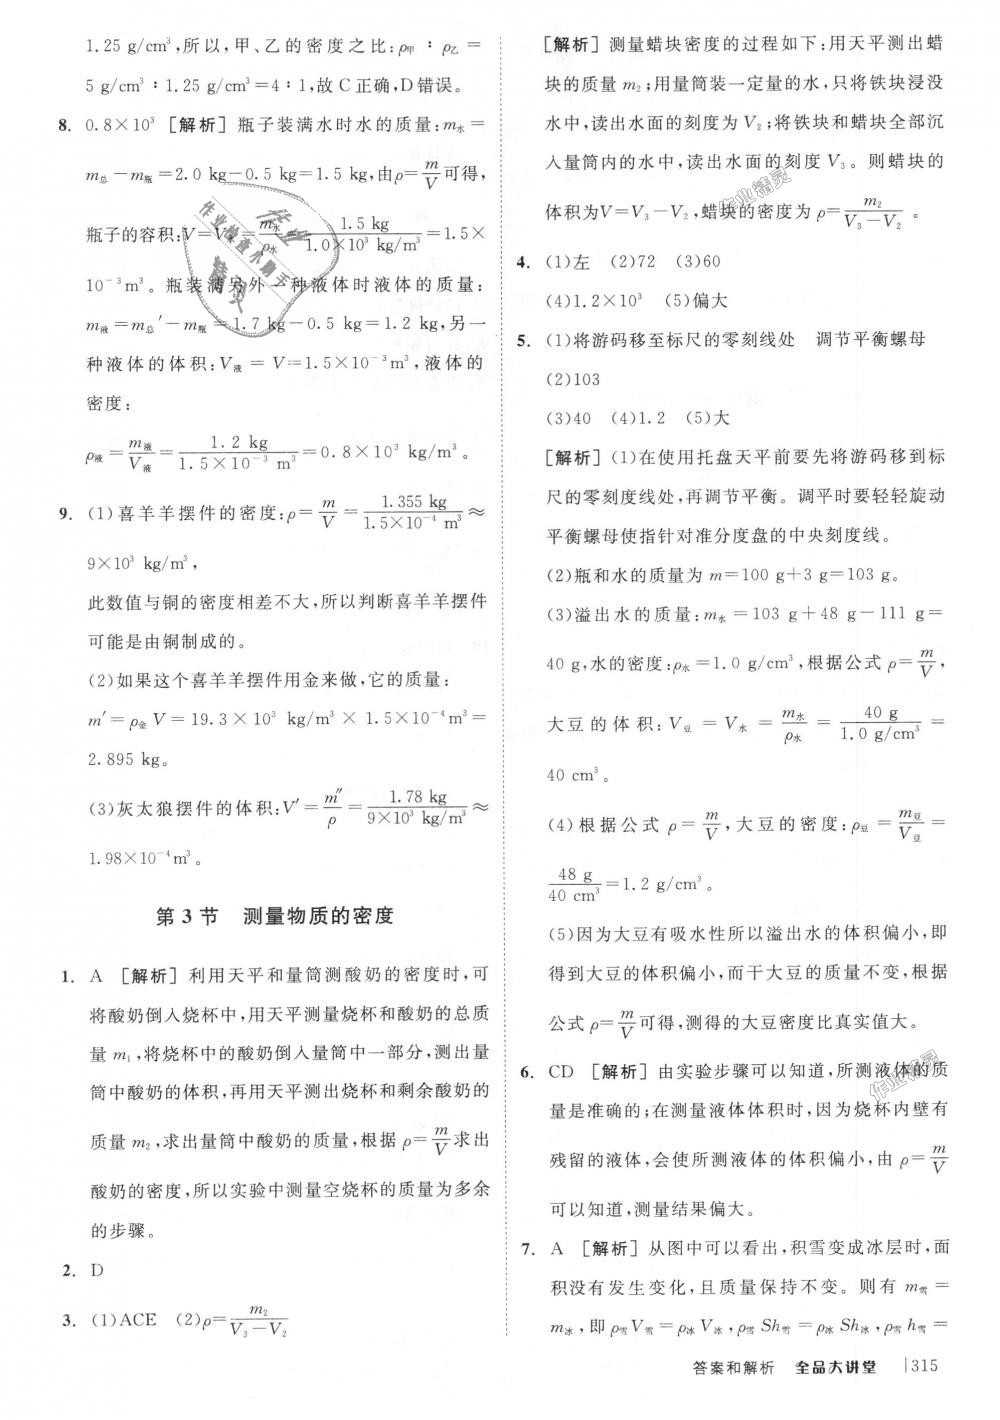 1.25 g/cm³,所以,甲、乙的密度之比:ρ甲∶ρ乙=
5 g/cm³∶1.25 g/cm³=4∶1,故C正确,D错误。
8. 0.8×10³ [解析] 瓶子装满水时水的质量:m水=
m总-m瓶=2.0 kg-0.5 kg=1.5 kg,由ρ=m/V可得,
瓶子的容积:V=V水=m水/ρ水=1.5 kg/1.0×10³ kg/m³=1.5×
10⁻³m³。瓶装满另外一种液体时液体的质量:
m液=m总′-m瓶=1.7 kg-0.5 kg=1.2 kg,另一
种液体的体积:V液=V=1.5×10⁻³m³,液体的
密度:
ρ液=m液/V液=1.2 kg/1.5×10⁻³ m³=0.8×10³ kg/m³。
9. (1)喜羊羊摆件的密度:ρ=m/V=1.355 kg/1.5×10⁻⁴ m³≈
9×10³ kg/m³,
此数值与铜的密度相差不大,所以判断喜羊羊摆件
可能是由铜制成的。
(2)如果这个喜羊羊摆件用金来做,它的质量:
m′=ρ金V=19.3×10³ kg/m³×1.5×10⁻⁴m³=
2.895 kg。
(3)灰太狼摆件的体积:V′=m″/ρ=1.78 kg/9×10³ kg/m³≈
1.98×10⁻⁴m³。
第3节 测量物质的密度
1. A [解析] 利用天平和量筒测酸奶的密度时,可
将酸奶倒入烧杯中,用天平测量烧杯和酸奶的总质
量m₁,将烧杯中的酸奶倒入量筒中一部分,测出量
筒中酸奶的体积,再用天平测出烧杯和剩余酸奶的
质量m₂,求出量筒中酸奶的质量,根据ρ=m/V求出
酸奶的密度,所以实验中测量空烧杯的质量为多余
的步骤。
2. D
3. (1)ACE (2)ρ=m₂/V₃-V₂
[解析] 测量蜡块密度的过程如下:用天平测出蜡
块的质量m₂;用量筒装一定量的水,只将铁块浸没
水中,读出水面的刻度为V₂;将铁块和蜡块全部沉
入量筒内的水中,读出水面的刻度V₃。则蜡块的
体积为V=V₃-V₂,蜡块的密度为ρ=m₂/V₃-V₂。
4. (1)左 (2)72 (3)60
(4)1.2×10³ (5)偏大
5. (1)将游码移至标尺的零刻线处 调节平衡螺母
(2)103
(3)40 (4)1.2 (5)大
[解析] (1)在使用托盘天平前要先将游码移到标
尺的零刻度线处,再调节平衡。调平时要轻轻旋动
平衡螺母使指针对准分度盘的中央刻度线。
(2)瓶和水的质量为m=100 g+3 g=103 g。
(3)溢出水的质量:m水=103 g+48 g-111 g=
40 g,水的密度:ρ水=1.0 g/cm³,根据公式ρ=m/V,
大豆的体积:V豆=V水=m水/ρ水=40 g/1.0 g/cm³=
40 cm³。
(4)根据公式ρ=m/V,大豆的密度:ρ豆=m豆/V豆=
48 g/40 cm³=1.2 g/cm³。
(5)因为大豆有吸水性所以溢出水的体积偏小,即
得到大豆的体积偏小,而干大豆的质量不变,根据
公式ρ=m/V可得,测得的大豆密度比真实值大。
6. CD [解析] 由实验步骤可以知道,所测液体的质
量是准确的;在测量液体体积时,因为烧杯内壁有
残留的液体,会使所测液体的体积偏小,由ρ=m/V
可以知道,测量结果偏大。
7. A [解析] 从图中可以看出,积雪变成冰层时,面
积没有发生变化,且质量保持不变。则有m雪=
m冰,即ρ雪V雪=ρ冰V冰,ρ雪Sh雪=ρ冰Sh冰,ρ雪h雪=
答案和解析 全品大讲堂 315
作业精灵
作业检查小助手
作业精灵
作业精灵